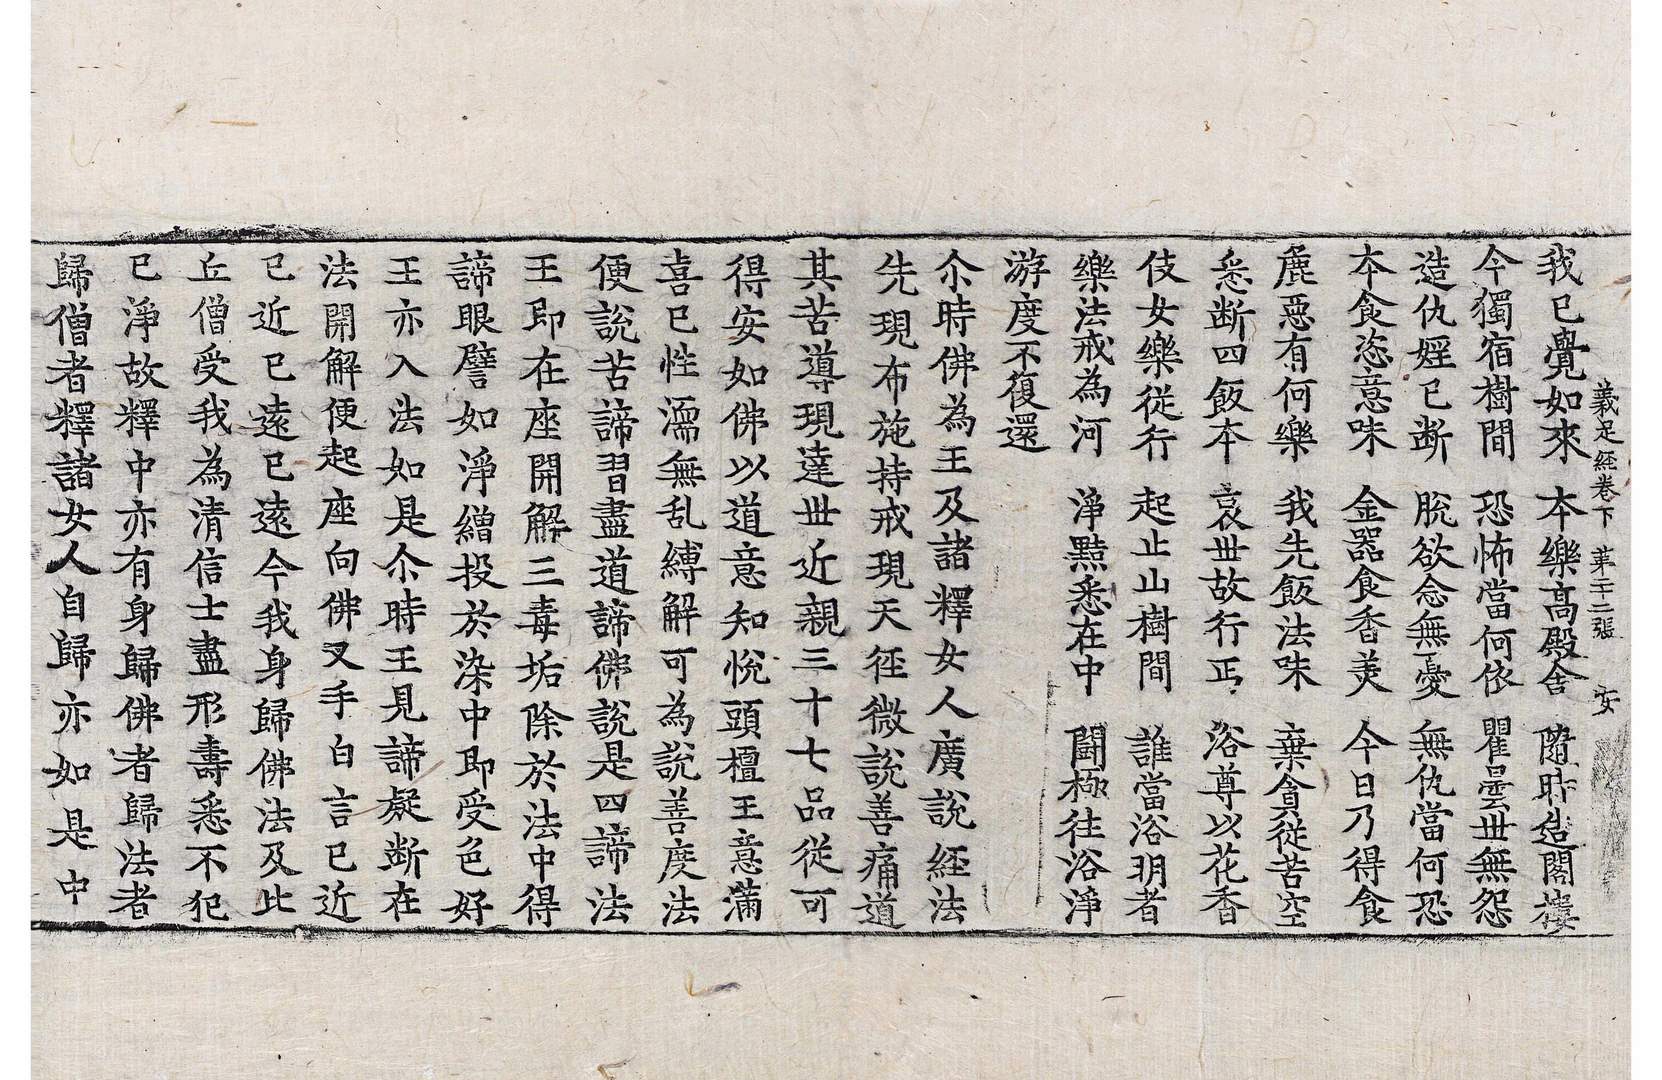 義足經卷下 第二十二張 安
我已覺如來 本樂髙殿舍 隨時造閣樓
今獨宿樹間 恐怖當何依 瞿曇世無怨
造仇婬已斷 脫欲念無憂 無仇當何恐
本食恣意味 金器食香美 今日乃得食
麁惡有何樂 我先飯法味 棄貪從苦空
悉断四飯本 哀世故行丐 浴尊以花香
伎女樂從行 起止山樹間 誰當浴明者
樂法戒為河 淨黠悉在中 鬪極往浴淨
游度不復還
尒時佛為王及諸釋女人廣說経法
先現布施持戒現天徑微說善痛道
其苦導現達世近親三十七品從可
得安如佛以道意知悅頭檀王意滿
喜已性濡無乱縛解可為說善度法
便說苦諦習盡道諦佛說是四諦法
王即在座開解三毒垢除於法中得
諦眼譬如淨繒投於染中即受色好
王亦入法如是尒時王見諦疑断在
法開解便起座向佛叉手白言已近
已近已遠已遠今我身歸佛法及比
丘僧受我為清信士盡形壽悉不犯
已淨故釋中亦有身歸佛者歸法者
歸僧者釋諸女人自歸亦如是中